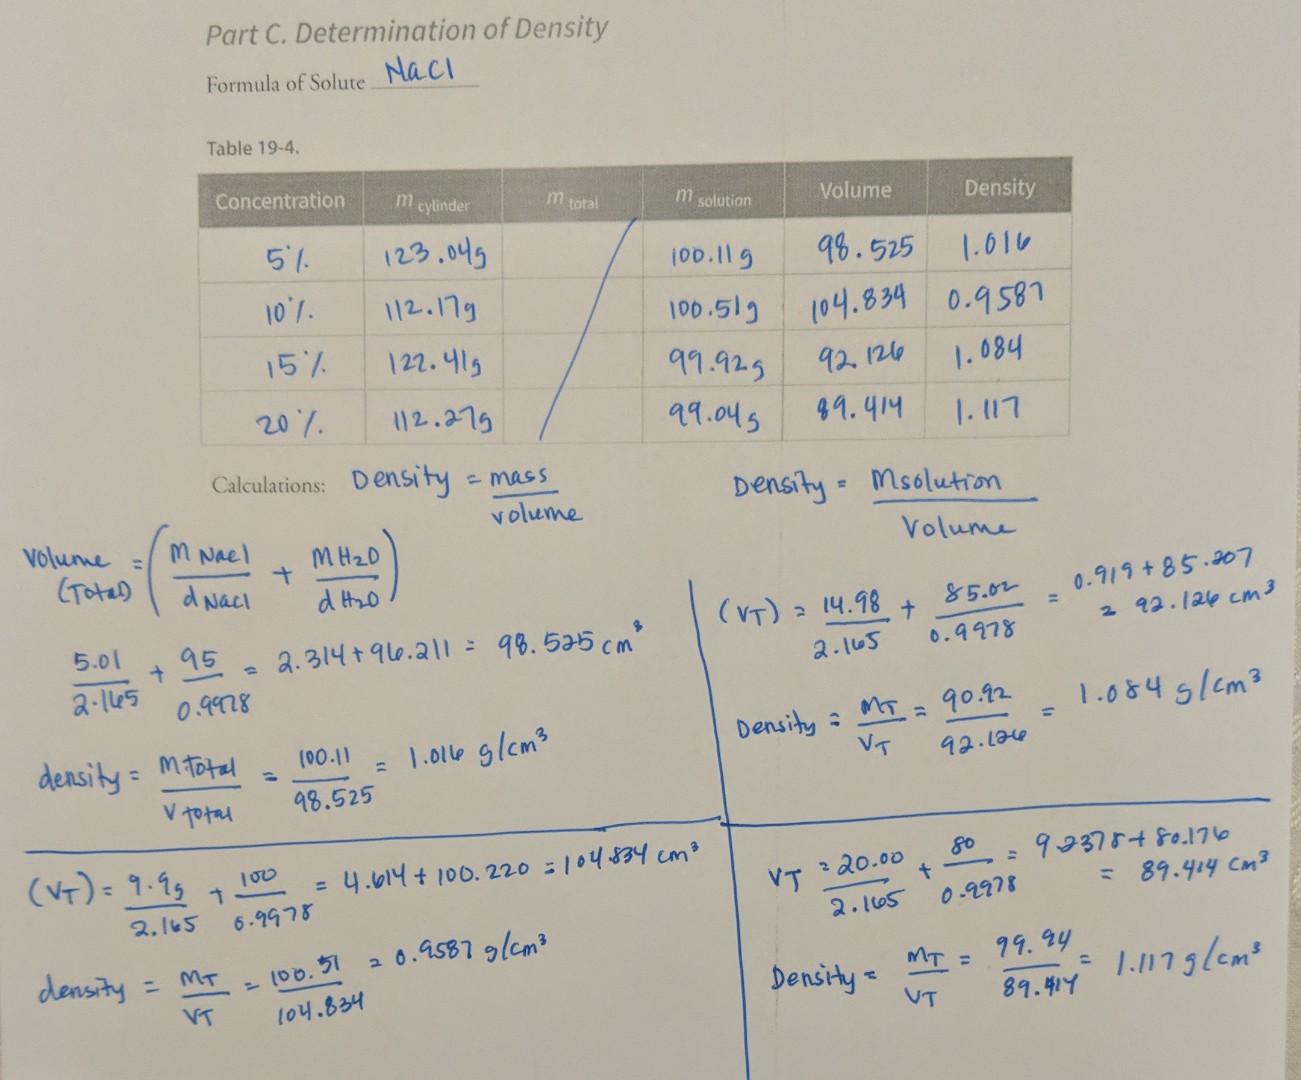 Part C. Determination of Density
Formula of Solute NaCl
Table 19-4.
Concentration m cylinder m total m solution Volume Density
5% 123.04g 100.11g 98.525 1.016
10% 112.17g 100.51g 104.834 0.9587
15% 122.41g 99.92g 92.126 1.084
20% 112.27g 99.04g 89.414 1.117
Calculations: Density = mass / volume
Density = Msolution / Volume
Volume (Total) = (m NaCl / d NaCl + m H2O / d H2O)
5.01 / 2.165 + 95 / 0.9978 = 2.314 + 96.211 = 98.525 cm³
density = m total / v total = 100.11 / 98.525 = 1.016 g/cm³
(VT) = 9.9g / 2.165 + 100 / 0.9978 = 4.614 + 100.220 = 104.834 cm³
density = MT / VT = 100.51 / 104.834 = 0.9587 g/cm³
(VT) = 14.98 / 2.165 + 85.02 / 0.9978 = 0.919 + 85.207
= 92.126 cm³
Density = MT / VT = 90.92 / 92.126 = 1.084 g/cm³
VT = 20.00 / 2.165 + 80 / 0.9978 = 9.2378 + 80.176
= 89.414 cm³
Density = MT / VT = 99.94 / 89.414 = 1.117 g/cm³